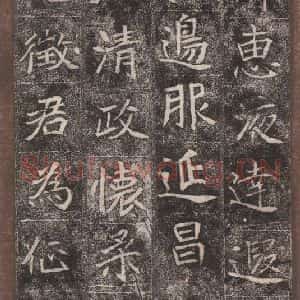 惠液達遐
邊服延昌
清政懷柔
徵君為
Shufawang.CN